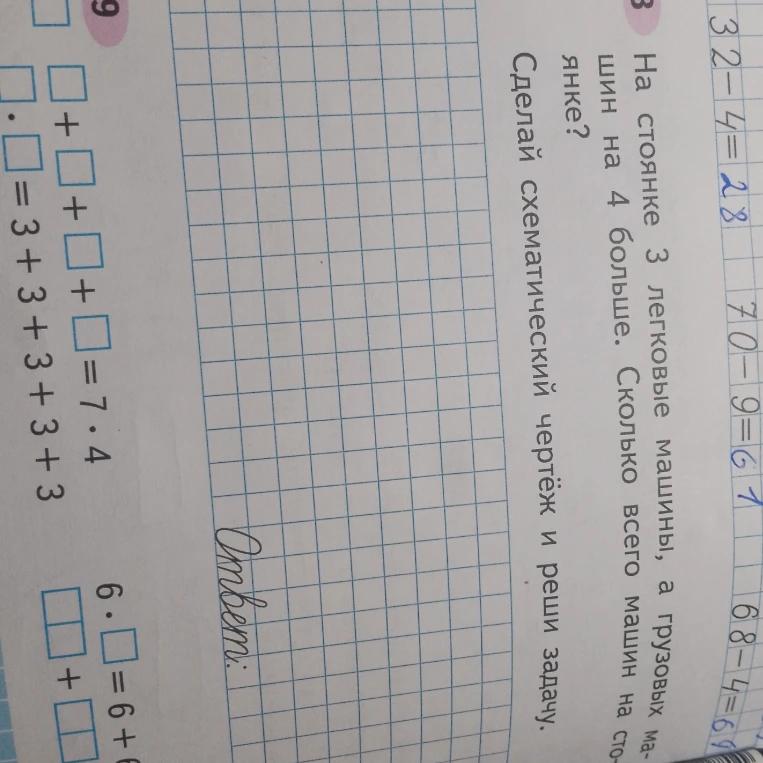 32-4=28 70-9=61 68-4=6
8 На стоянке 3 легковые машины, а грузовых ма-
шин на 4 больше. Сколько всего машин на сто-
янке?
Сделай схематический чертёж и реши задачу.
Ответ:
9 □ + □ + □ + □ = 7 · 4 6 · □ = 6 +
□ · □ = 3 + 3 + 3 + 3 + 3 □□ + □